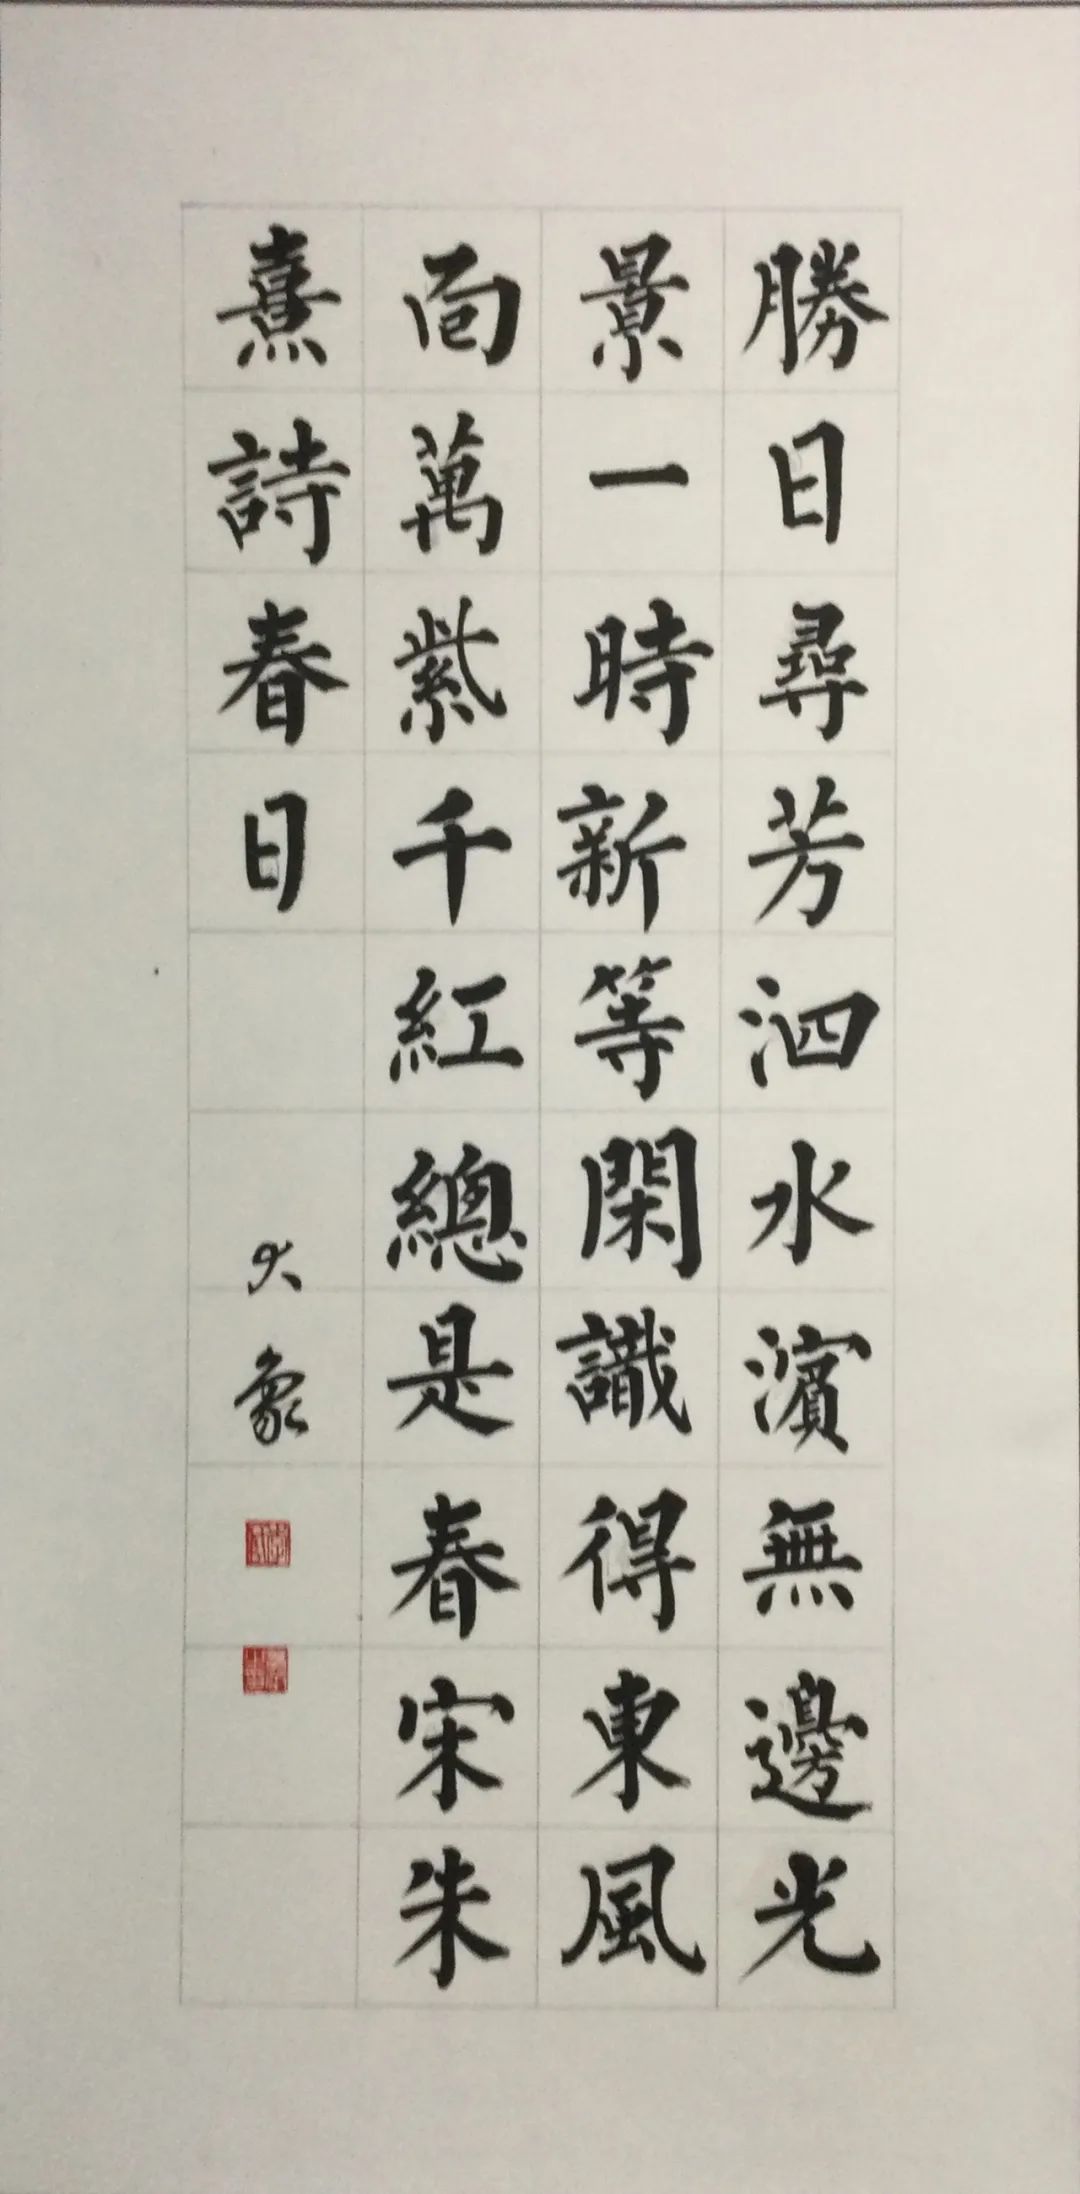 勝日尋芳泗水濱無邊光
景一時新等閑識得東風
面萬紫千紅總是春宋朱
熹詩春日
大象